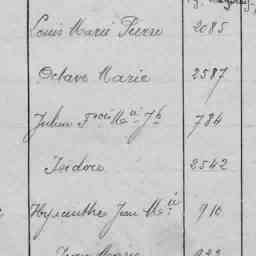 Louis Marie Pierre 2085
Octave Marie 2587
Julien Fçois Mie Jh 784
Isidore 2542
Hyacinthe Jean Mie 910